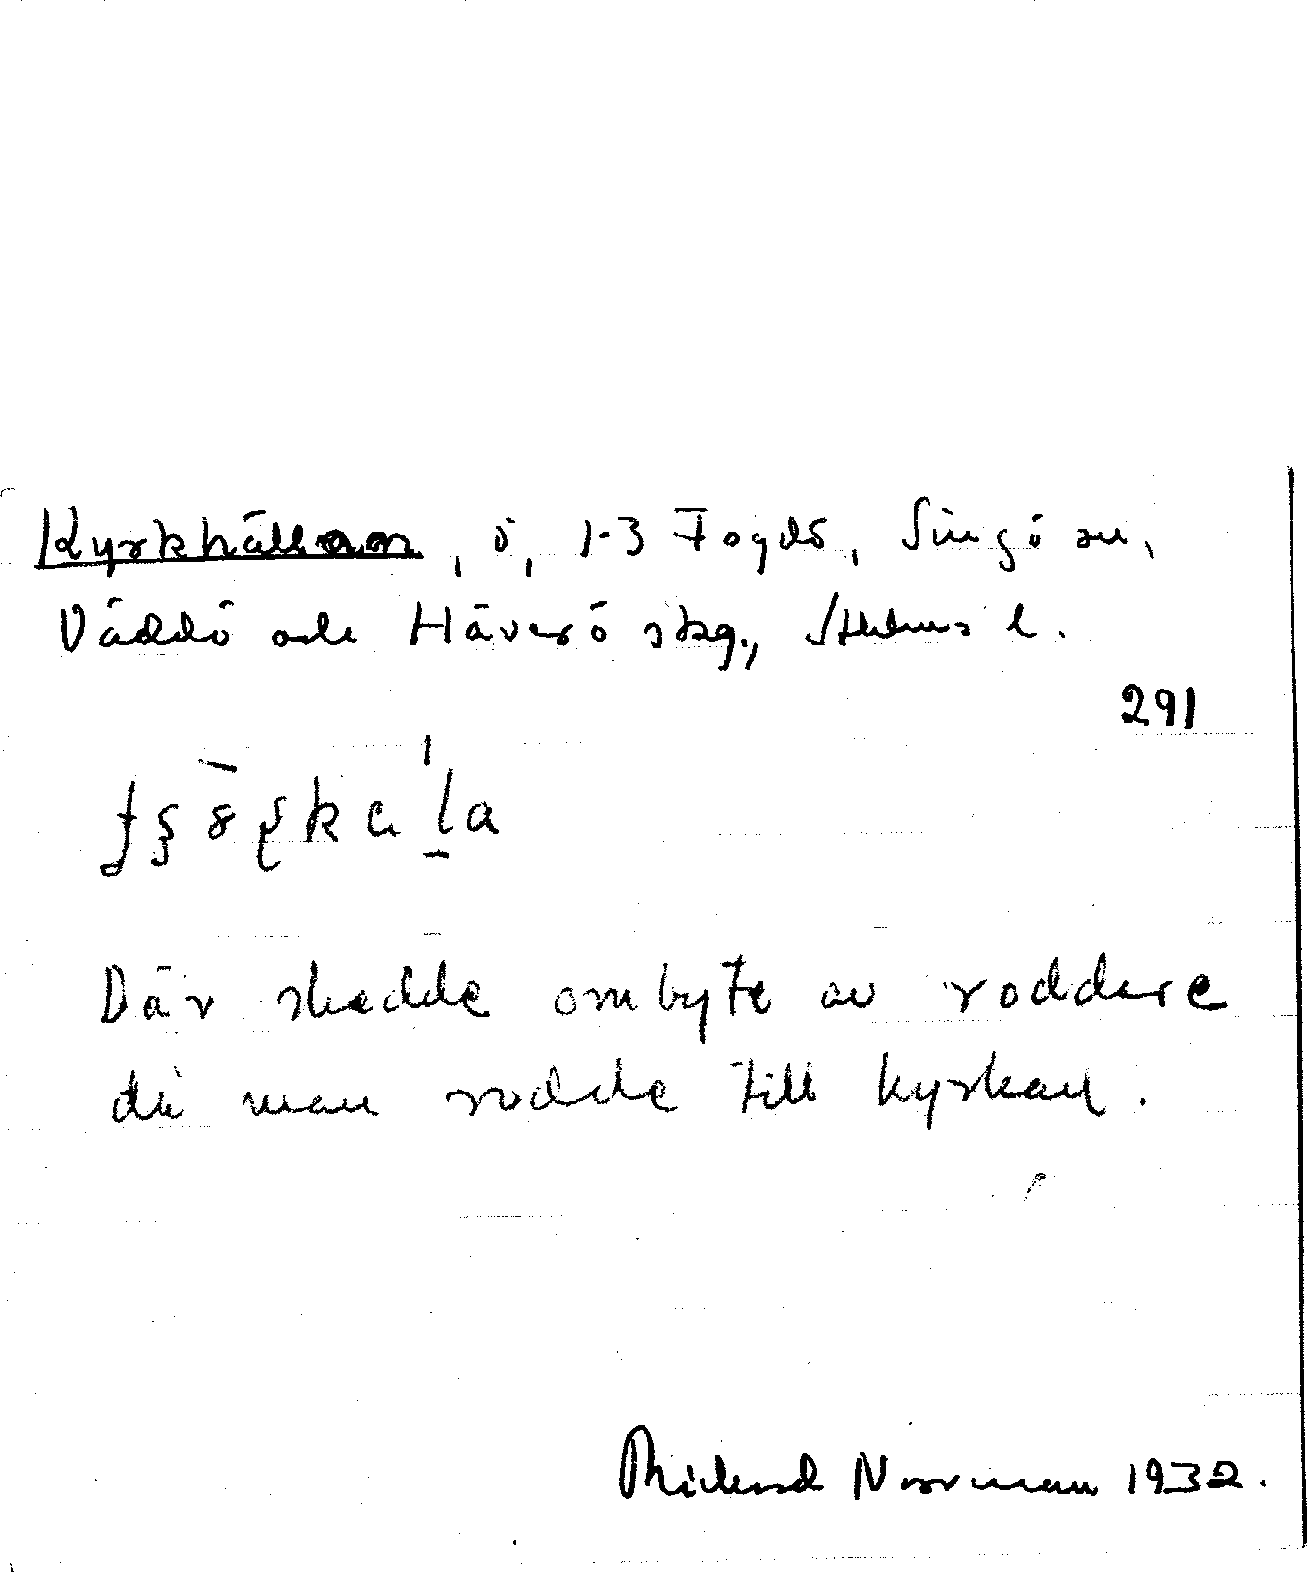 Kyrkhällan, ö, 1-3 Fogdö, Singö sn,
Väddö och Häverö skg., Sthlms l.
291
Där skedde ombyte av roddare
då man rodde till kyrkan.
Rickard Norrman 1932.